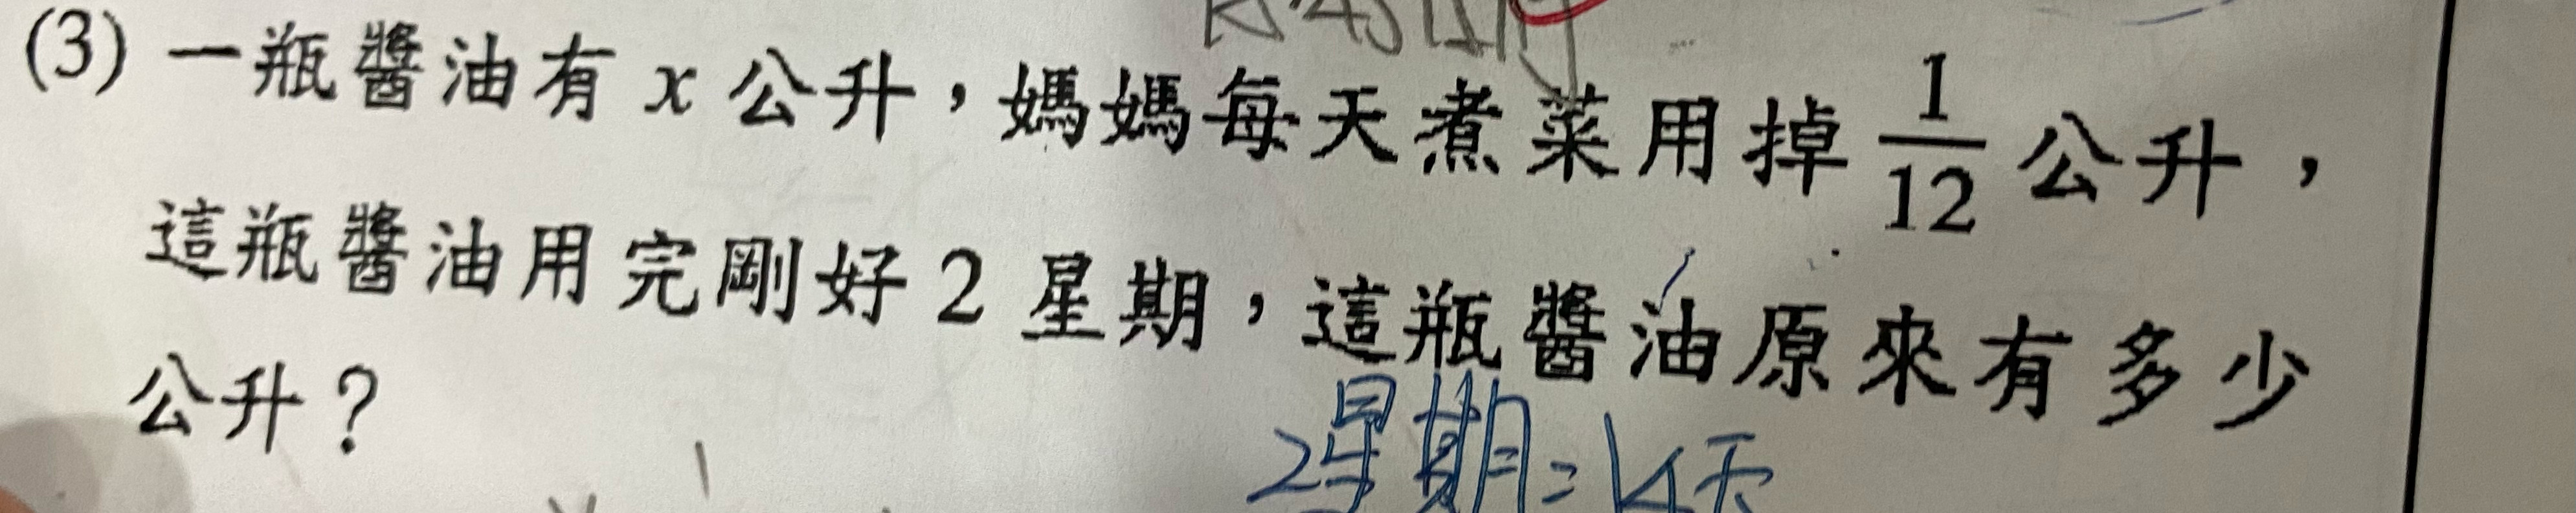 (3) 一瓶醬油有 x 公升，媽媽每天煮菜用掉 1/12 公升，
這瓶醬油用完剛好 2 星期，這瓶醬油原來有多少
公升？
2星期=14天